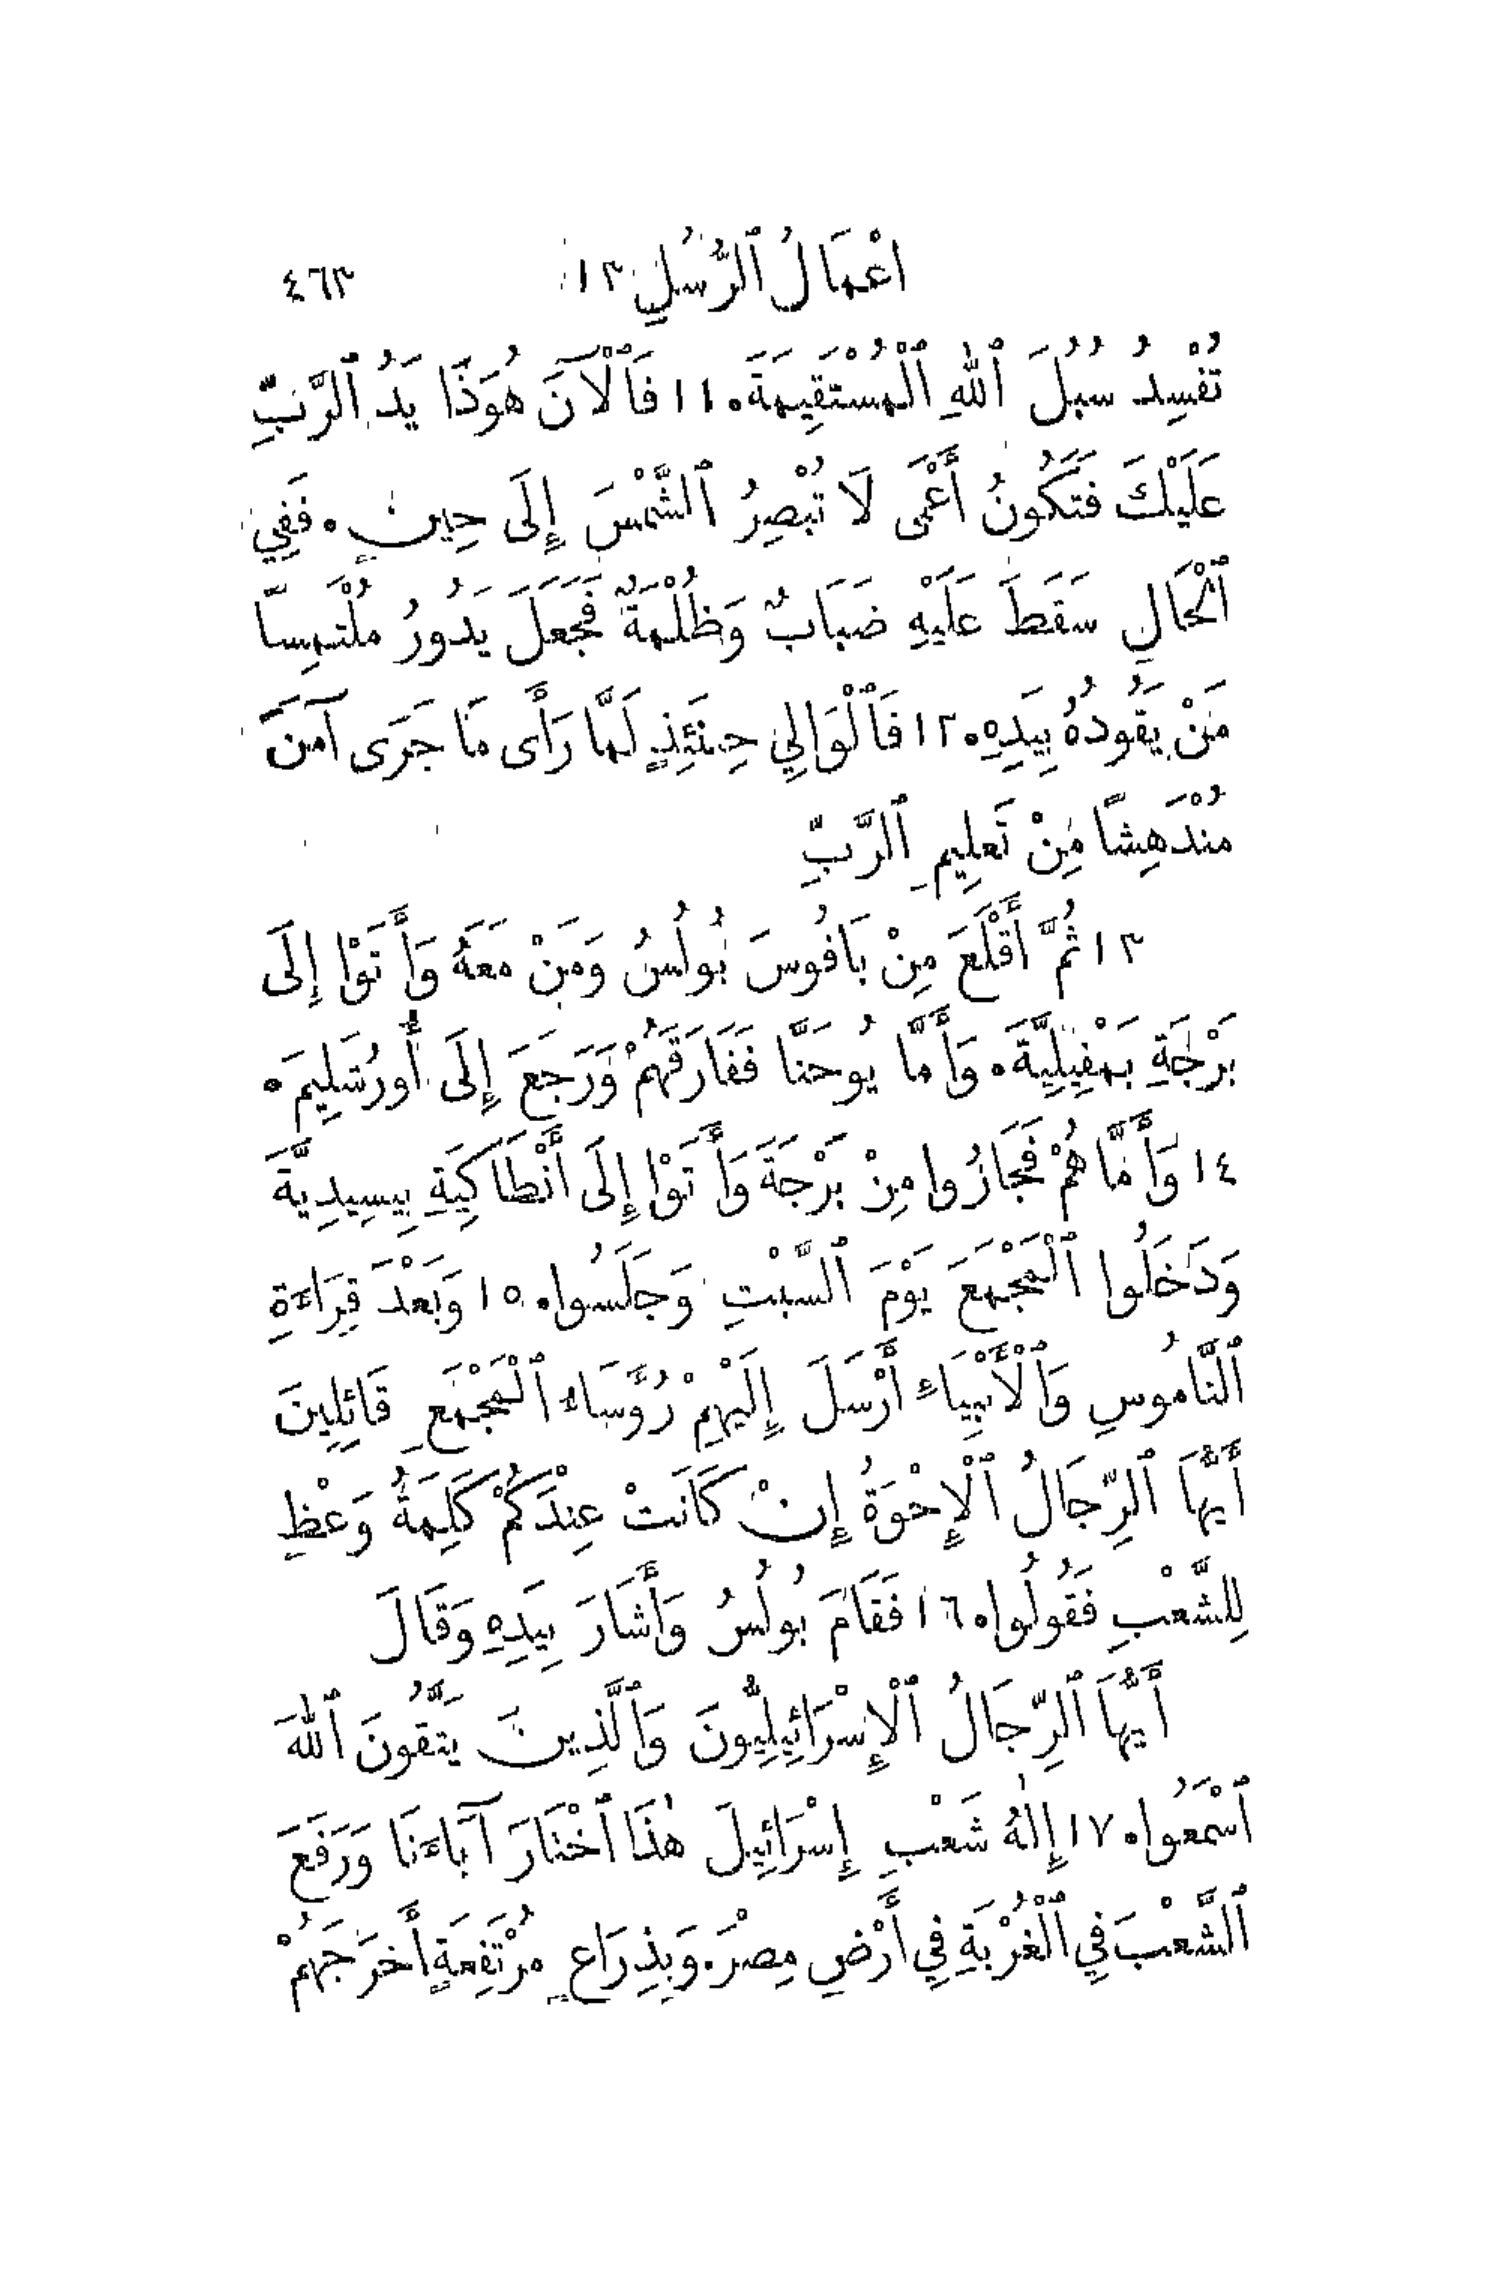 اعْمَالُ ٱلرُّسُلِ ١٣ ٤٦٣
تُفْسِدُ سُبُلَ ٱللهِ ٱلْمُسْتَقِيمَةَ. ١١ فَٱلْآنَ هُوَذَا يَدُ ٱلرَّبِّ
عَلَيْكَ فَتَكُونُ أَعْمَى لَا تُبْصِرُ ٱلشَّمْسَ إِلَى حِينٍ. فَفِي
ٱلْحَالِ سَقَطَ عَلَيْهِ ضَبَابٌ وَظُلْمَةٌ فَجَعَلَ يَدُورُ مُلْتَمِسًا
مَنْ يَقُودُهُ بِيَدِهِ. ١٢ فَٱلْوَالِي حِينَئِذٍ لَمَّا رَأَى مَا جَرَى آمَنَ
مُنْدَهِشًا مِنْ تَعلِيمِ ٱلرَّبِّ
١٣ ثُمَّ أَقْلَعَ مِنْ بَافُوسَ بُولُسُ وَمَنْ مَعَهُ وَأَتَوْا إِلَى
بَرْجَةِ بَمْفِيلِيَّةَ. وَأَمَّا يُوحَنَّا فَفَارَقَهُمْ وَرَجَعَ إِلَى أُورُشَلِيمَ.
١٤ وَأَمَّا هُمْ فَجَازُوا مِنْ بَرْجَةَ وَأَتَوْا إِلَى أَنْطَاكِيَةِ بِيسِيدِيَّةَ
وَدَخَلُوا ٱلْمَجْمَعَ يَوْمَ ٱلسَّبْتِ وَجَلَسُوا. ١٥ وَبَعْدَ قِرَاءَةِ
ٱلنَّامُوسِ وَٱلْأَنْبِيَاءِ أَرْسَلَ إِلَيْهِمْ رُؤَسَاءُ ٱلْمَجْمَعِ قَائِلِينَ
أَيُّهَا ٱلرِّجَالُ ٱلْإِخْوَةُ إِنْ كَانَتْ عِنْدَكُمْ كَلِمَةُ وَعْظٍ
لِلشَّعْبِ فَقُولُوا. ١٦ فَقَامَ بُولُسُ وَأَشَارَ بِيَدِهِ وَقَالَ
أَيُّهَا ٱلرِّجَالُ ٱلْإِسْرَائِيلِيُّونَ وَٱلَّذِينَ يَتَّقُونَ ٱللهَ
ٱسْمَعُوا. ١٧ إِلٰهُ شَعْبِ إِسْرَائِيلَ هٰذَا ٱخْتَارَ آبَاءَنَا وَرَفَعَ
ٱلشَّعْبَ فِي ٱلْغُرْبَةِ فِي أَرْضِ مِصْرَ. وَبِذِرَاعٍ مُرْتَفِعَةٍ أَخرَجَهُمْ